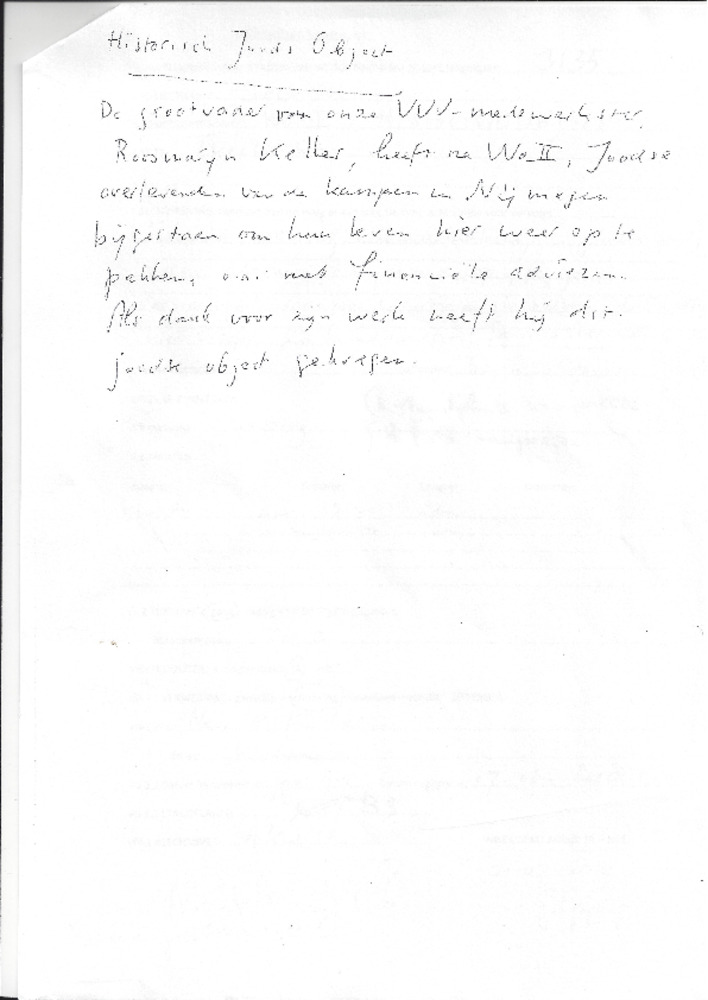 Historisch Joods Object
De grootvader van onze VVV-medewerkster,
Roosmarijn Keller, heeft na WoII, Joodse
overlevenden van de kampen in Nijmegen
bijgestaan om hun leven hier weer op te
pakken, o.a. met financiële adviezen.
Als dank voor zijn werk heeft hij dit
joodse object gekregen.